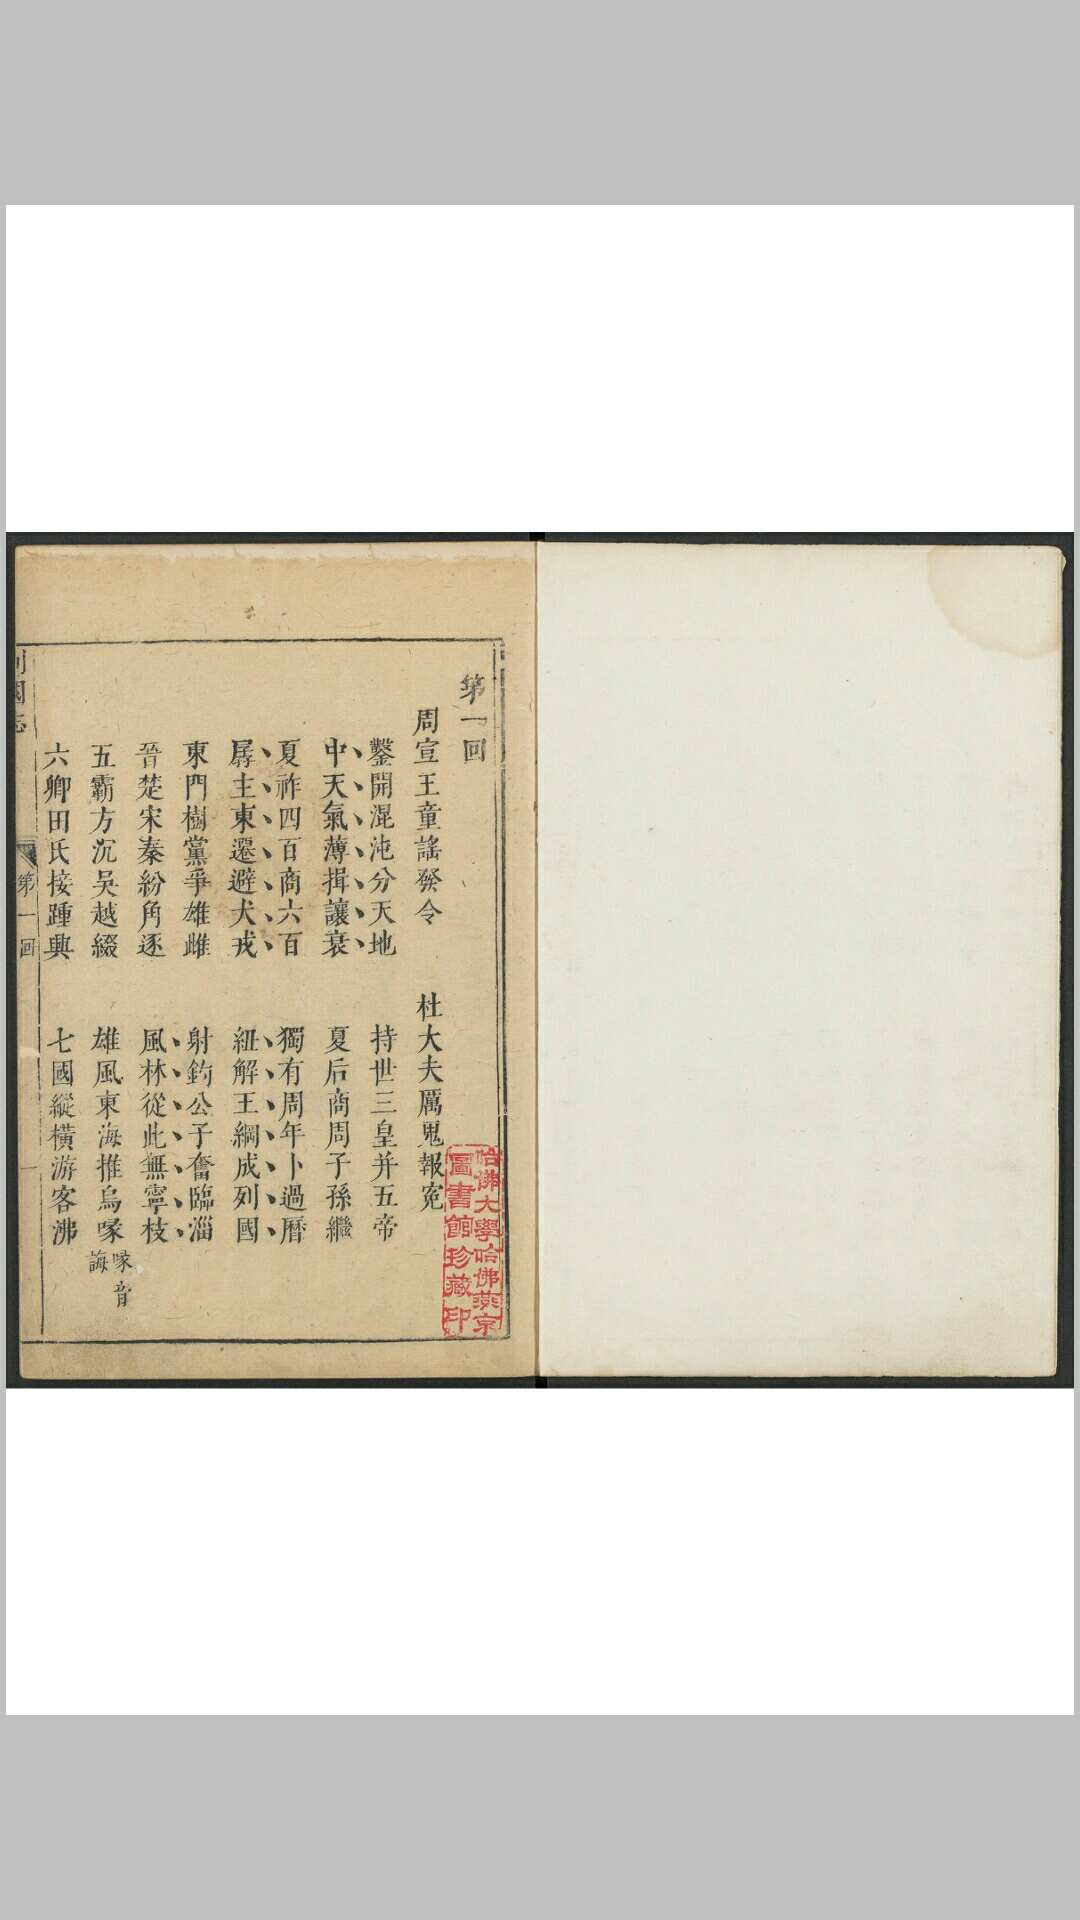 第一回
周宣王童謠發令　杜大夫厲鬼報冤
鑿開混沌分天地　持世三皇并五帝
中天氣薄揖讓衰　夏后商周子孫繼
夏祚四百商六百　獨有周年卜過曆
孱主東遷避犬戎　紐解王綱成列國
東門樹黨爭雄雌　射鈎公子奮臨淄
晉楚宋秦紛角逐　風林從此無寧枝
五霸方沉吳越綴　雄風東海推烏喙 喙音誨
六卿田氏接踵興　七國縱橫游客沸
列國志　第一回　一
哈佛大學哈佛燕京
圖書館珍藏印